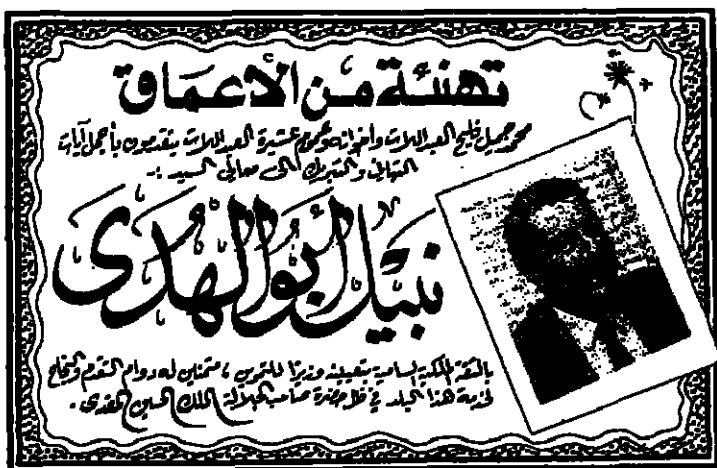 تهنئة من الأعماق
محمد جميل فليح العبد اللات وأخوانه وعموم عشيرة العبد اللات يتقدمون بأجمل آيات
التهاني والتبريك الى معالي السيد :-
نبيل أبو الهدى
بالثقة الملكية السامية بتعيينه وزيرًا للتموين ، متمنين له دوام التقدم والنجاح
لخدمة هذا البلد في ظل حضرة صاحب الجلالة الملك الحسين المفدى .